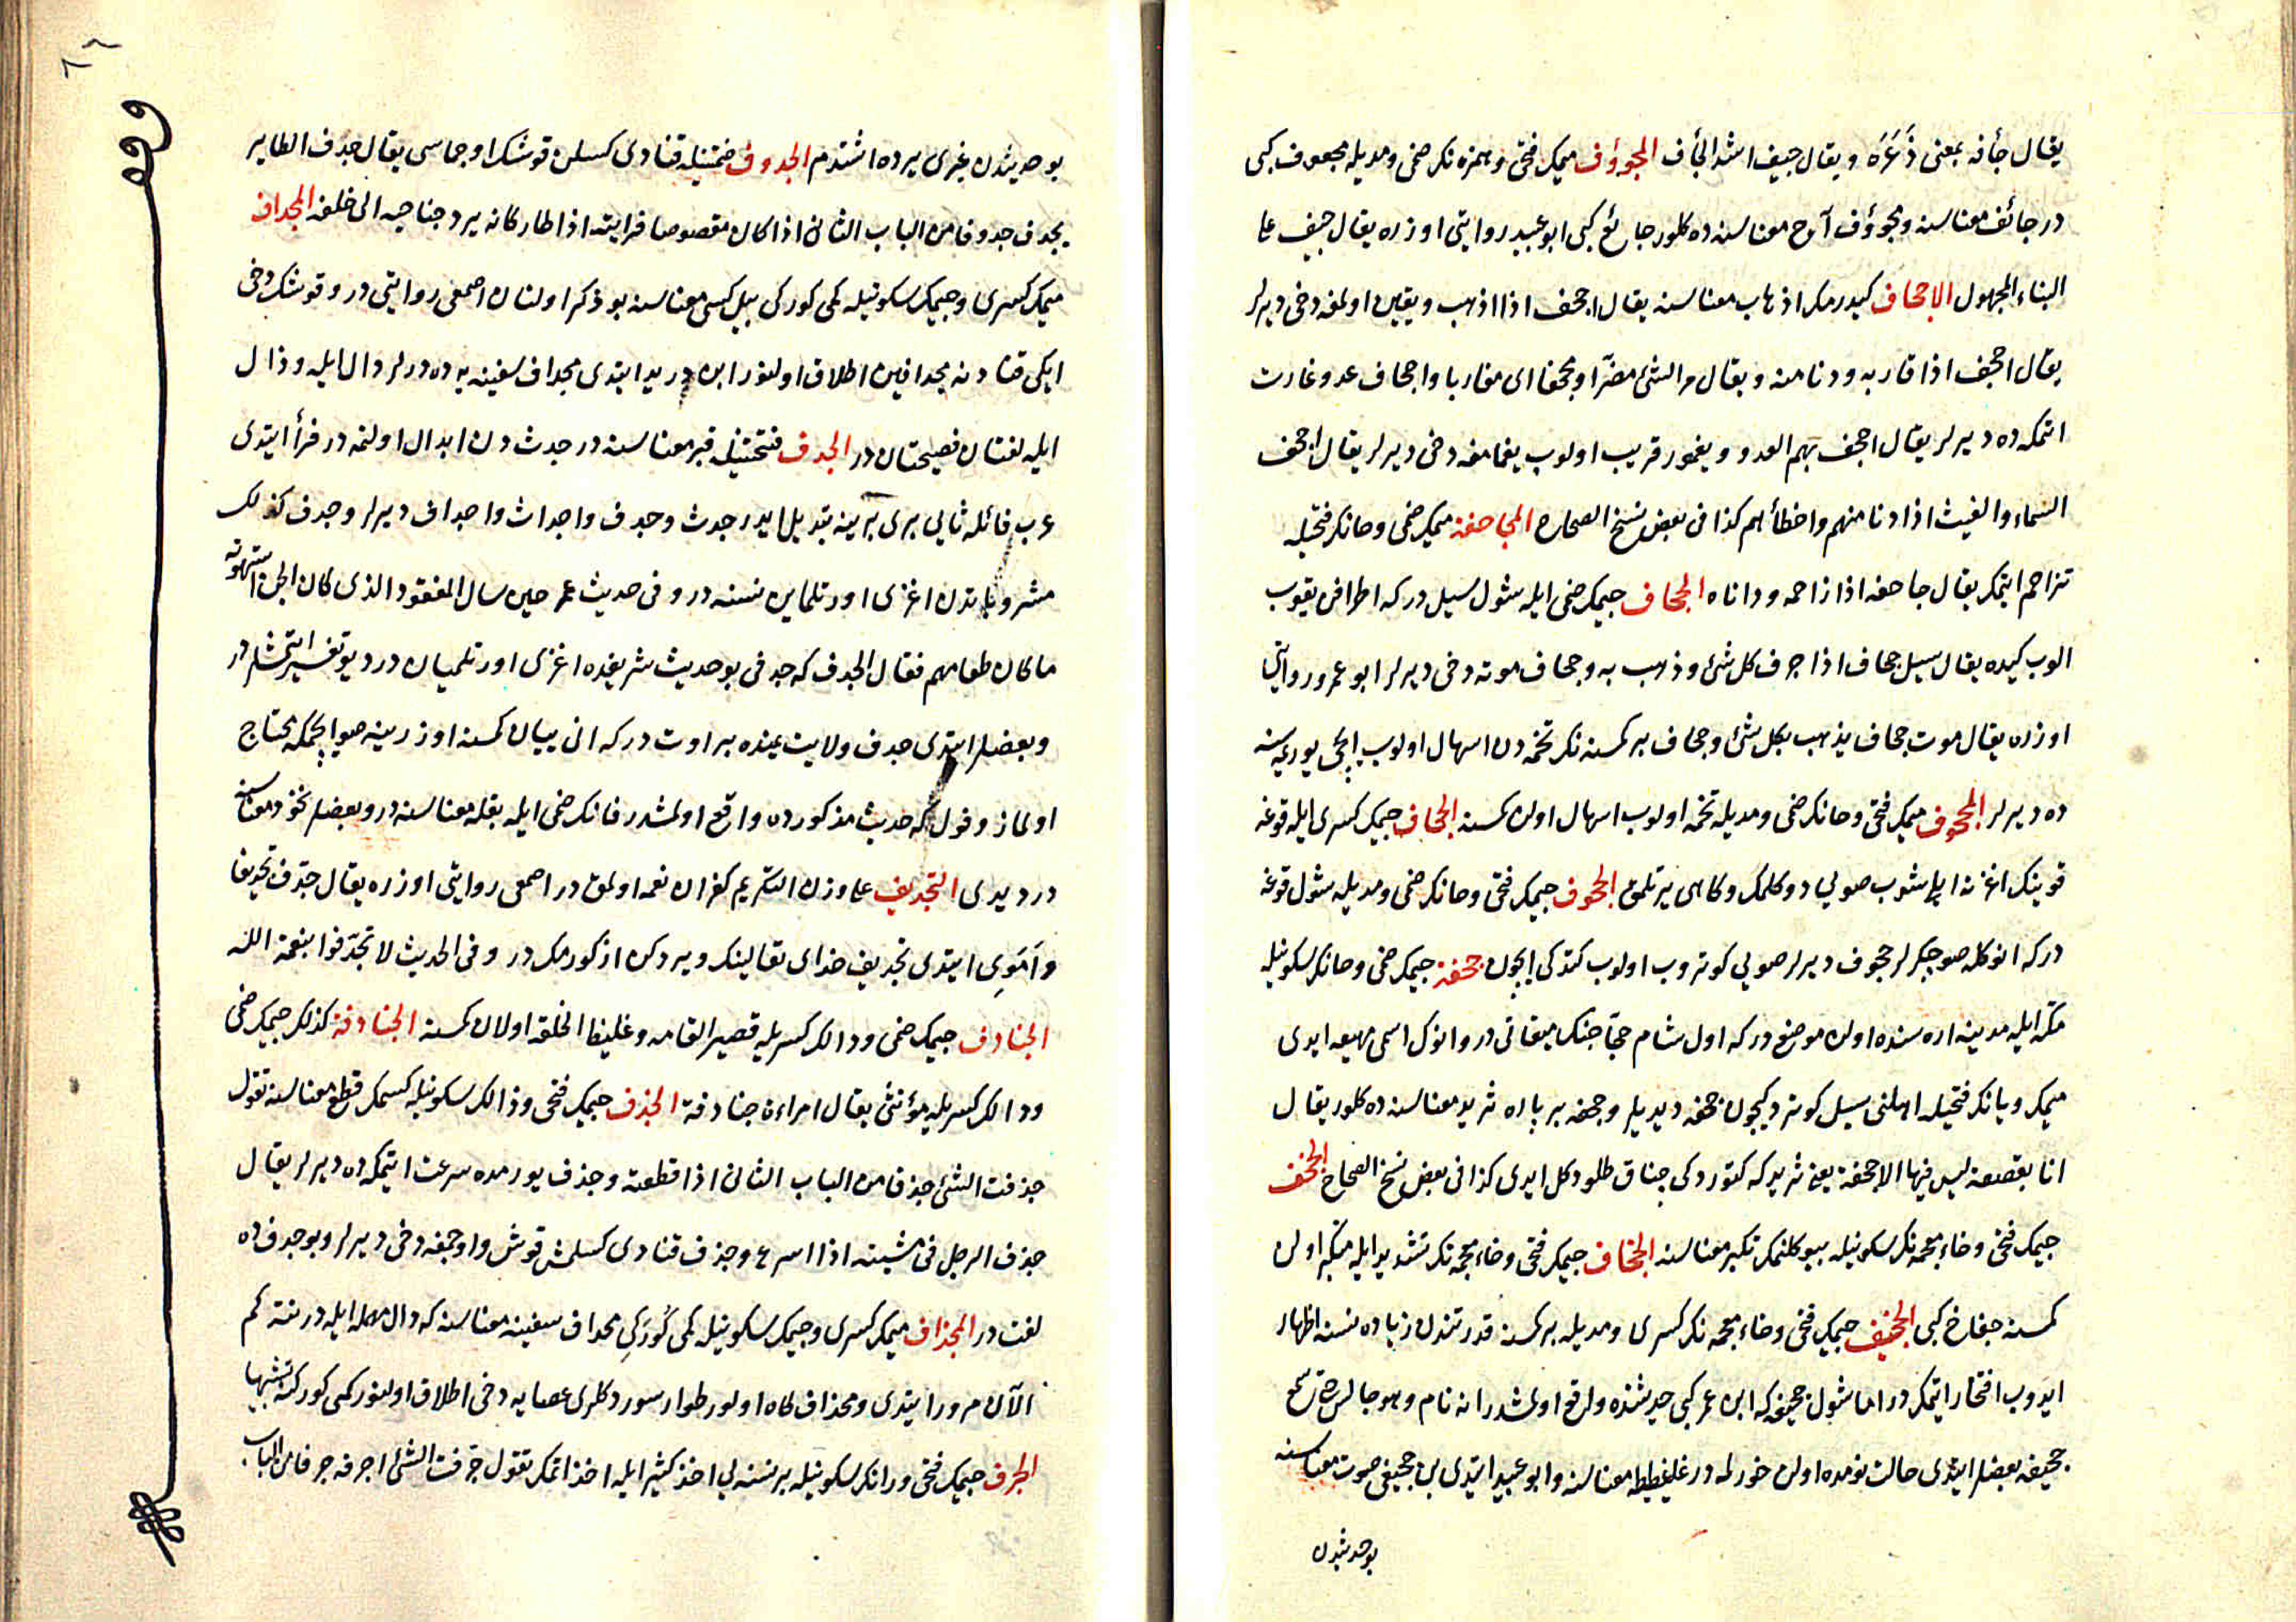 يقال جأفه بمعنى ذَعَرَه ويقال جيف اشد الجأف المجوؤف ميمك فتحى وهمزه نك ضمى ومديله مجعوف كبى
در جائف معناسنه ومجوؤف آج معناسنه ده كلور جائع كبى ابو عبيد روايتى اوزره يقال جيف على
البناء المجهول الاجحاف كيدرمك اذهاب معناسنه يقال اجحف اذا اذهب ويقين اولمغه دخى ديرلر
يقال اجحف اذا قاربه ودنا منه ويقال مر الشئ مضرّا ومجحفا اى مقاربا واجحاف عدو غارت
اتمكه ده ديرلر يقال اجحف بهم العدو ويغمور قريب اولوب يغمامغه دخى ديرلر يقال اجحف
السماء والغيث اذا دنا منهم واخطأهم كذا فى بعض نسخ الصحاح المجاحفة ميمك ضمى وحانك فتحيله
تزاحم ايتمك يقال جاحفه اذا زاحمه وداناه الجحاف جيمك ضمى ايله شول سيل دركه اطرافن يقوب
الوب كيده يقال سيل جحاف اذا جرف كل شئ وذهب به وجحاف موته دخى ديرلر ابو عمرو روايتى
اوزره يقال موت جحاف يذهب بكل شئ وجحاف بر كمسنه نك تخمه دن اسهال اولوب ايچى يوريمسنه
ده ديرلر المجحوف ميمك فتحى وحانك ضمى ومديله تخمه اولوب اسهال اولن كمسنه الجحاف جيمك كسرى ايله قوغه
قوينك اغزنه ايلشوب صويى دوكلمك وكاهى يرتلمق الجحوف جيمك فتحى وحانك ضمى ومديله شول قوغه
دركه انوكله صو چكرلر جحوف ديرلر صويى كوتروب اولوب كتدكى ايچون جحفة جيمك ضمى وحانك سكونيله
مكه ايله مدينه اره سنده اولن موضع دركه اول شام حجاجنك ميقاتى در وانوك اسمى مهيعه ايدى
ميمك ويانك فتحيله اهلنى سيل كوتردكيچون جحفه ديديلر وجحفه بر پاره ثريد معناسنده كلور يقال
انا بقصعة ليس فيها الا جحفة يعنى ثريد كه كتوردكى چناق طلو دكل ايدى كذا فى بعض نسخ الصحاح الجخف
جيمك فتحى وخاء معجمه نك سكونيله بيوكلنمك تكبر معناسنه الجخاف جيمك فتحى وخاء معجمه نك تشديد ايله متكبر اولن
كمسنه جفاخ كبى الجخيف جيمك فتحى وخاء معجمه نك كسرى ومديله بر كمسنه قدرتندن زياده نسنه اظهار
ايدوب افتخار ايتمك در اما شول جخيف كه ابن عمر كبى حديثنده واقع اولمشدر انه نام وهو جالس حتى سمع
جخيفه بعضلر ايتدى حالت نومده اولن خورلمه در غليظيط معناسنه وابو عبيد ايتدى بن جخيفى صوت معناسنه
بو حديثدن
بو حديثدن غيرى يرده اشتدم الجدوف ضمتيله قنادى كسلمش قوشك اوچماسى يقال جدف الطاير
يجدف جدوفا من الباب الثانى اذا كان مقصوصا فرايته اذا طار كانه يرد جناحيه الى خلفه المجداف
ميمك كسرى وجيمك سكونيله كمى كوركى بيل كبى معناسنه بو ذكر اولنان اصمعى روايتى در وقوشك دخى
ايكى قنادنه مجدافين اطلاق اولنور ابن دريد ايتدى مجداف سفينه يه ده ديرلر دال ايله وذال
ايله لغتان فصيحتان در الجدف فتحتيله قبر معناسنه در جدث دن ابدال اولنمه در فرأ ايتدى
عرب فائله ثايى برى برينه تبديل ايدر جدث وجدف واجداث واجداف ديرلر وجدف كذلك
مشروباتدن اغزى اورتلماين نسنه در وفى حديث عمر حين سال المفقود الذى كان الجن استهوته
ما كان طعامهم فقال الجدف كه جدفى بو حديث شريفده اغزى اورتلميان در ديو تفسير ايتمشلر در
وبعضلر ايتدى جدف ولايت يمنده بر اوت دركه انى ييان كمسنه اوزرينه صو ايچمكه محتاج
اولماز وفول كه حديث مذكورده واقع اولمشدر فانك ضمى ايله بقله معناسنه در وبعضلر نخود معناسنه
در ديدى التجديف على وزن التكريم كفران نعمه اولمق در اصمعى روايتى اوزره يقال جدّف تجديفا
وَاَمَوِى ايتدى تجديف خداى تعالينك ويردكن از كورمك در وفى الحديث لا تجدّفوا بنعمة الله
الجنادف جيمك ضمى ودالك كسريله قصير القامه وغليظ الخلقه اولان كمسنه الجنادفة كذلك جيمك ضمى
ودالك كسريله مؤنثى يقال امراءة جنادفة الجذف جيمك فتحى وذالك سكونيله كسمك قطع معناسنه تقول
جذفت الشئ جذفا من الباب الثانى اذا قطعته وجذف يورمده سرعت ايتمكه ده ديرلر يقال
جذف الرجل فى مشيته اذا اسرع وجذف قنادى كسلمش قوش واوچمغه دخى ديرلر وبو جدف ده
لغت در المجذاف ميمك كسرى وجيمك سكونيله كمى كُورَكى مجداف سفينه معناسنه كه دال مهمله ايله در نته كم
الآن مرور ايتدى ومجذاف كاه اولور طوار سوردكلرى عصايه دخى اطلاق اولنور كمى كوركنه تشبيها
الجرف جيمك فتحى ورانك سكونيله بر نسنه يى اخذ كثير ايله اخذ اتمك تقول جرفت الشئ اجرفه جرفا من الباب